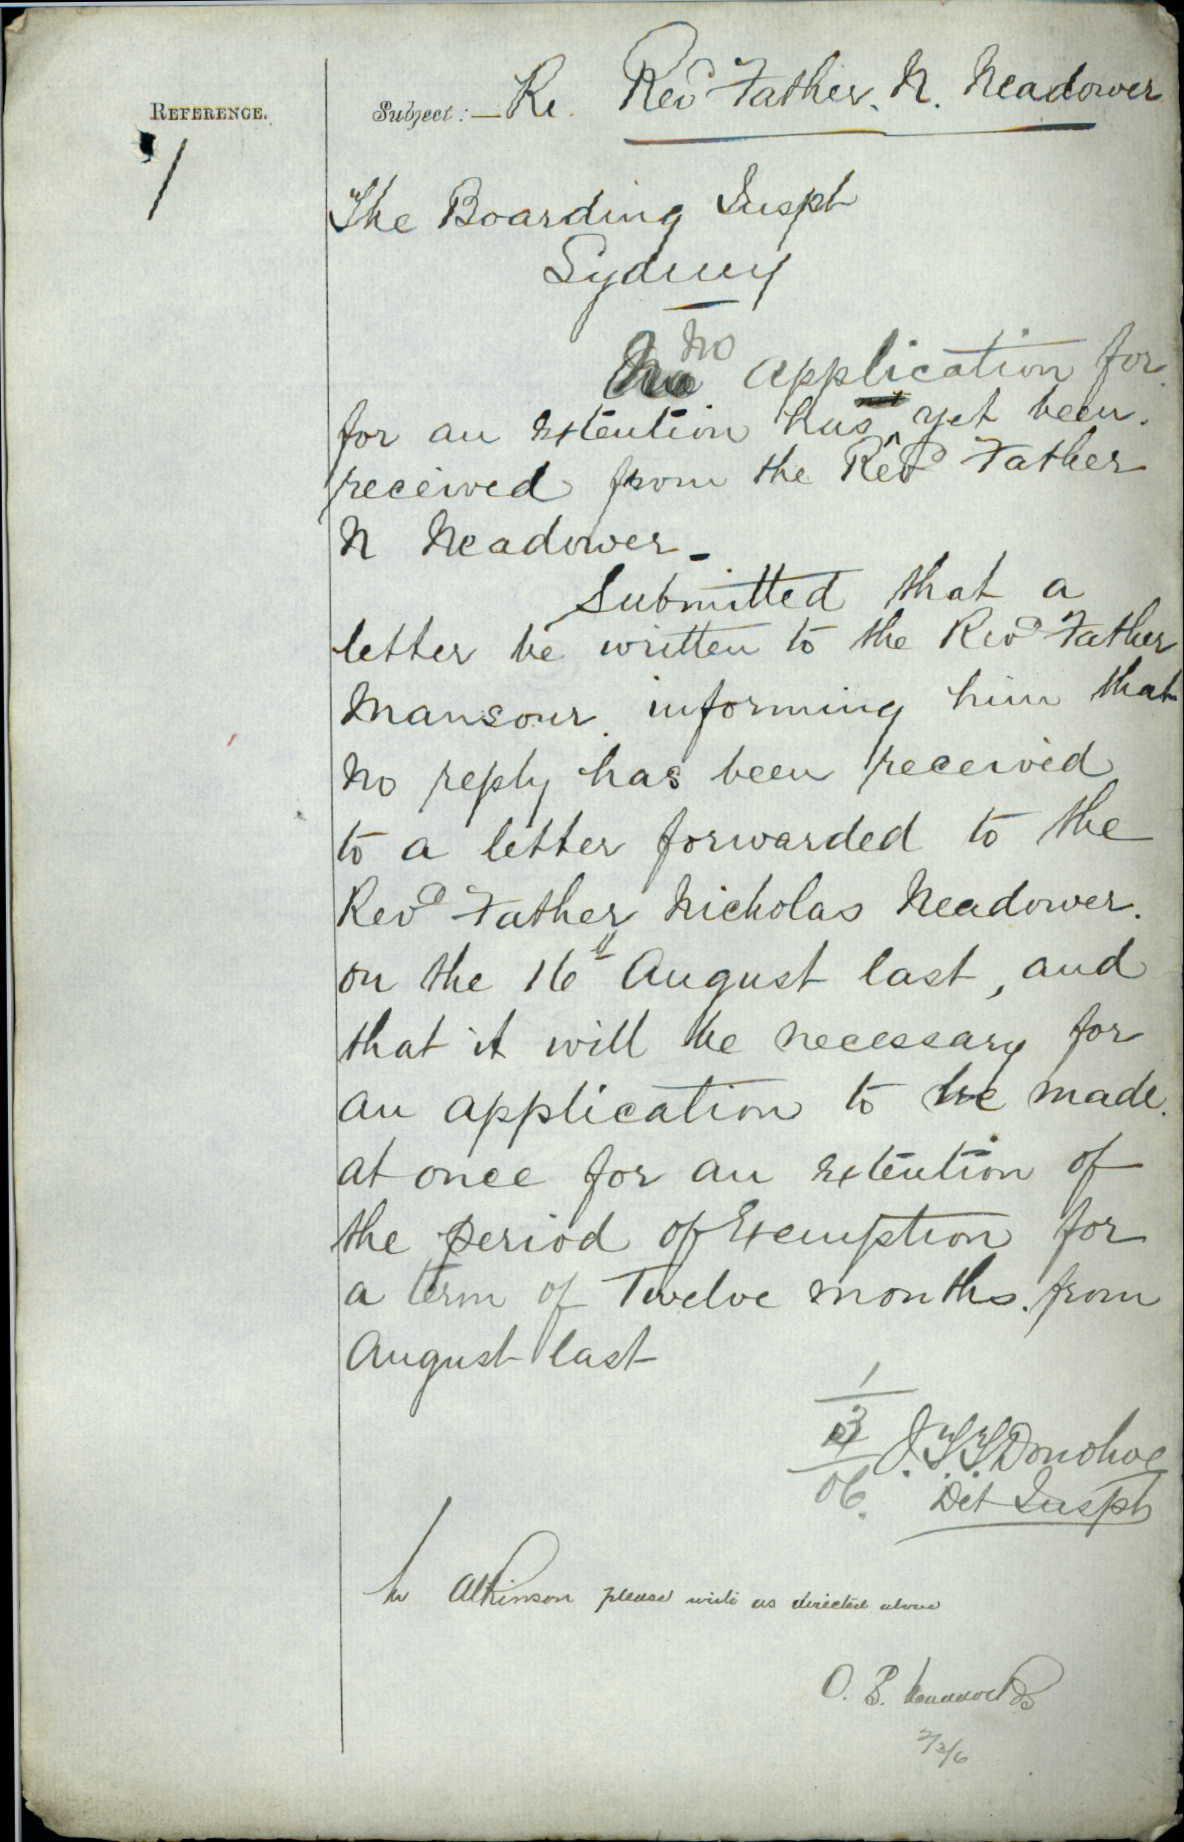 REFERENCE.
Subject:— Re. Revd Father. N. Neadower
The Boarding Insptr
Sydney
No application for
for an extention has yet been.
received from the Revd Father
N Neadower –
Submitted that a
letter be written to the Revd Father
Mansour. informing him that
no reply has been received
to a letter forwarded to the
Revd Father Nicholas Neadower.
on the 16" August last, and
that it will be necessary for
an application to be made.
at once for an extention of
the period of Exemption for
a term of Twelve months. from
August last
1
3
06.
J. T. T. Donohoe
Det Insptr
Mr Atkinson please write as directed above
O. B.
2/3/6